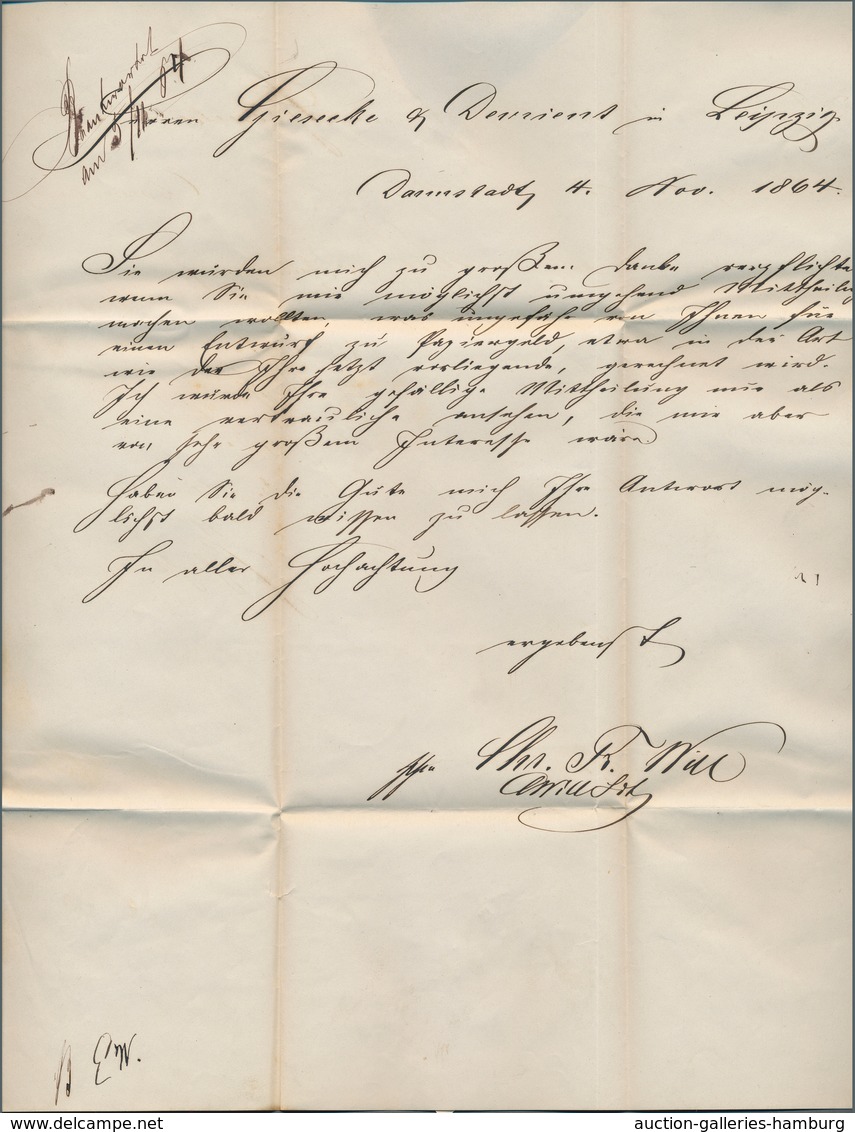 Beantwortet
am 5/11 64.
Herren Giesecke & Devrient in Leipzig
Darmstadt, 4. Nov. 1864.
Sie würden mich zu großem Danke verpflichten
wenn Sie mir möglichst umgehend Mittheilung
machen wollten, was ungefähr von Ihnen für
einen Entwurf zu Papiergeld, etwa in der Art
wie der Ihre jetzt vorliegende, gerechnet wird.
Ich würde Ihre gefällige Mittheilung nur als
eine vertrauliche ansehen, die mir aber
von sehr großem Interesse wäre
Haben Sie die Güte mich Ihre Antwort mög-
lichst bald wissen zu lassen.
In aller Hochachtung
ergebenst
Chr. R. Will
auction-galleries-hamburg
www.delcampe.net